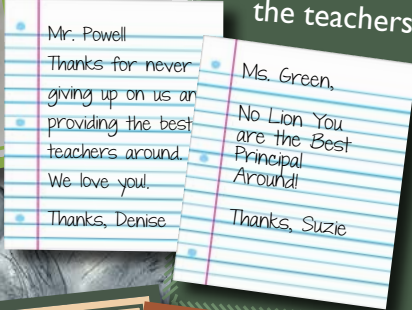 the teachers
Mr. Powell
Thanks for never
giving up on us an
providing the best
teachers around.
We love you!.
Thanks, Denise
Ms. Green,
No Lion You
are the Best
Principal
Around!
Thanks, Suzie